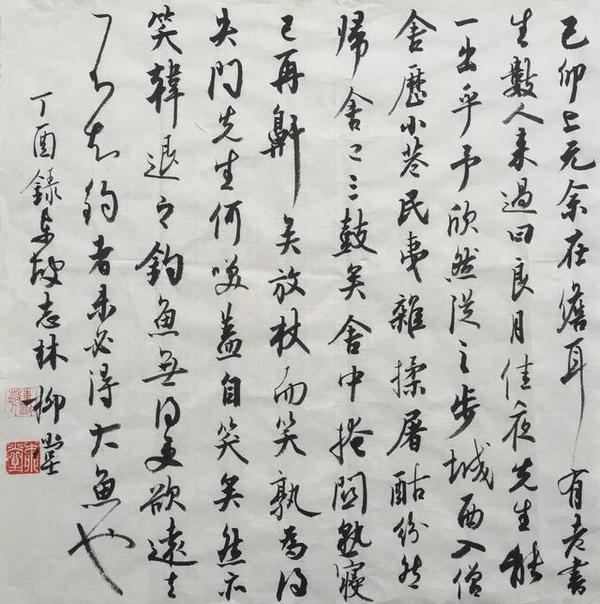 己卯上元余在儋耳有老書
生數人來過曰良月佳夜先生能
一出乎予欣然從之步城西入僧
舍歷小巷民夷雜揉屠酤紛然
歸舍已三鼓矣舍中掩關熟寢
已再鼾矣放杖而笑孰為得
失問先生何笑蓋自笑矣然亦
笑韓退之釣魚無得更欲遠去
不知釣者未必得大魚也
丁酉錄東坡志林柳